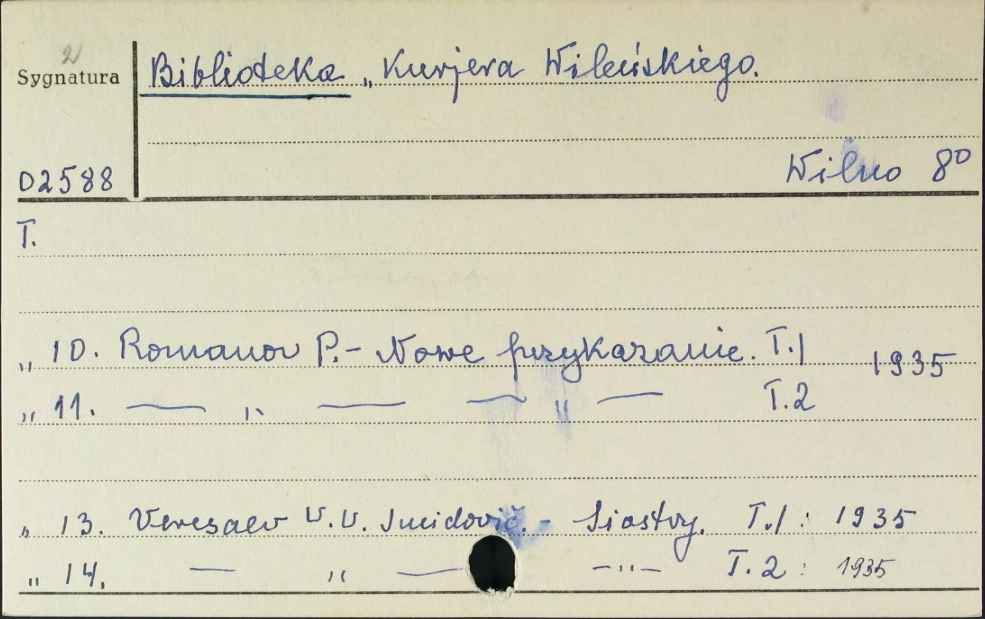 2
Sygnatura
Biblioteka „Kurjera Wileńskiego.
Wilno 8⁰
D2588
T.
„ 10. Romanov P. - Nowe przykazanie. T.1 1935
„ 11. — „ — — „ — T.2
„ 13. Veresaev V. V. Smidovič. - Siostry. T.1 : 1935
„ 14. — „ — - „ - T. 2 : 1935